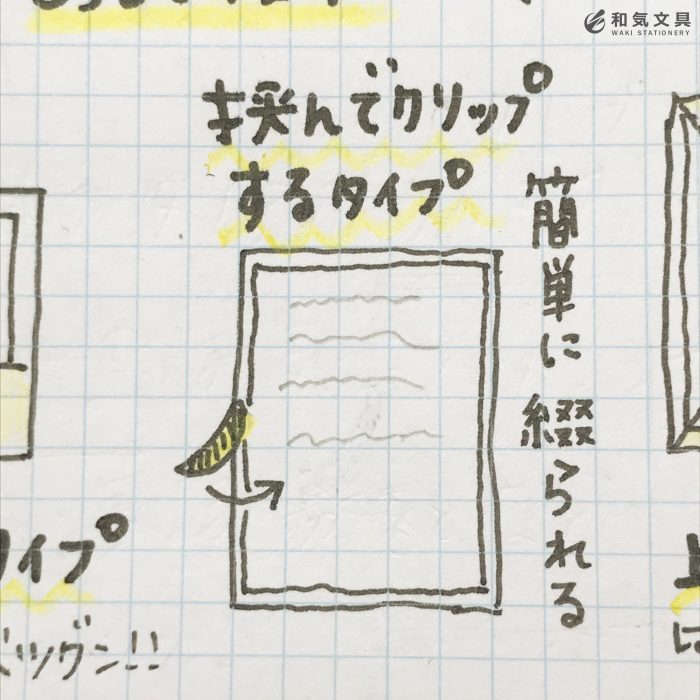 和気文具
WAKI STATIONERY
挟んでクリップ
するタイプ
簡単に綴られる
タイプ
バツグン!!
上
は